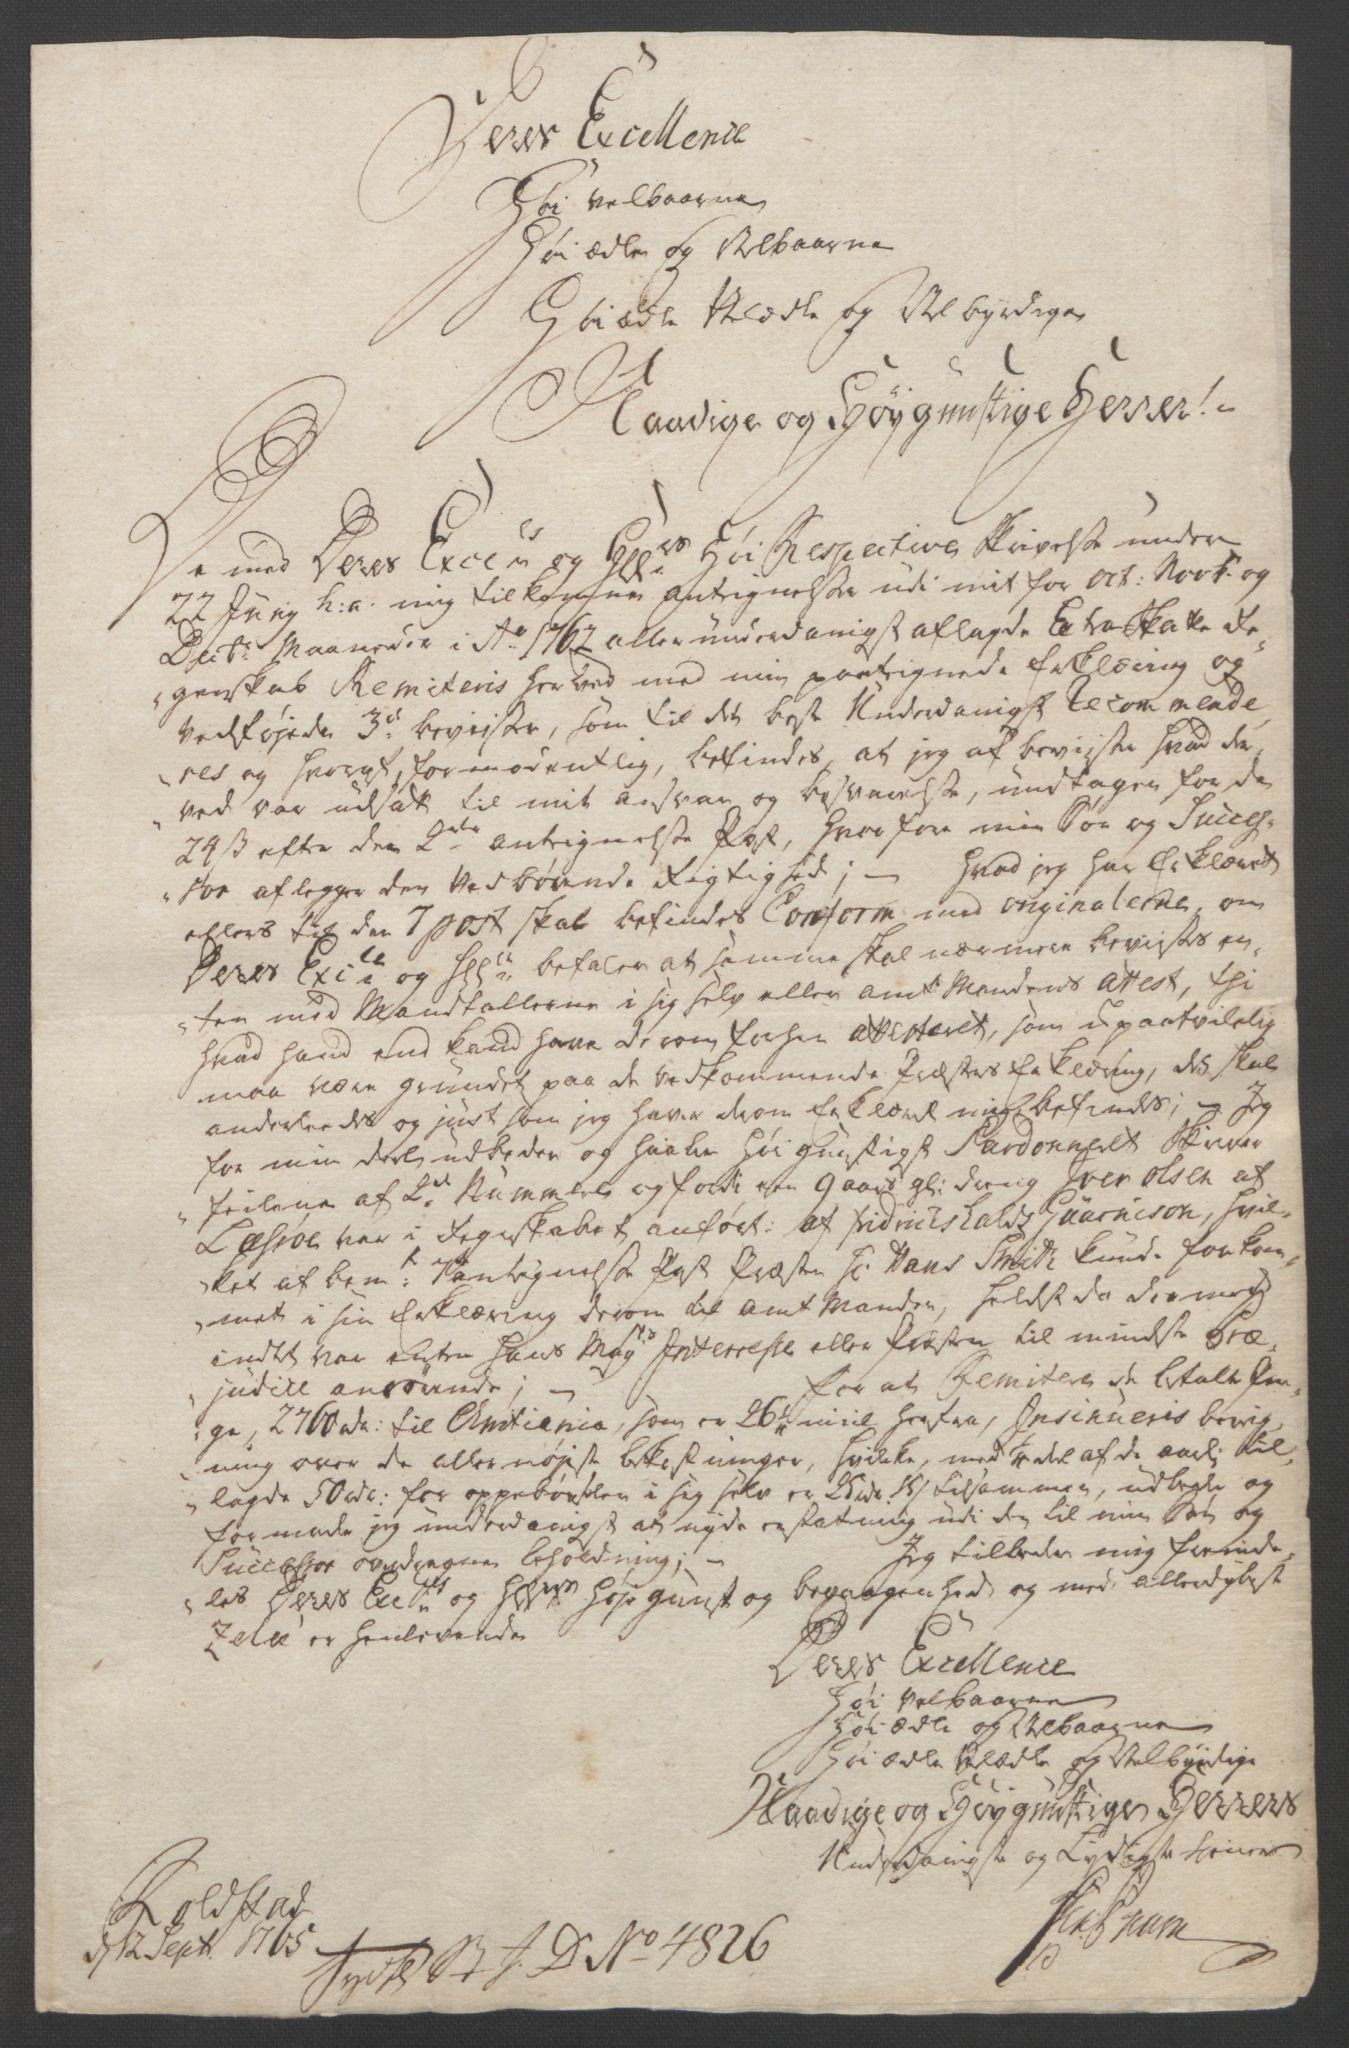 Deres Excellence
Høi Velbaarne
Høi ædle og Velbaarne
Høi ædle Velædle og Velbyrdige
Naadige og Høygunstige Herrer!
De med Deres Exce og Høi Respective Skrivelse under
22 Juny h: a: mig tilkomne Antegnelser udi mit for Oct: Novb: og
Decbr: Maaneder i Ao 1762 allerunderdanigst aflagde Extra Skatte Re-
genskab Remiteris herved med min paategnede Erklæring og
vedføjede 3de beviiser, som til det beste Underdanigst Recommende-
res og hvoraf, formodentlig, befindes, at jeg af beviiser hvad der-
ved var udsat til mit ansvar og besvarelse, undtagen for de
24 s efter den 2den antegnelses Post, hvorfore min Søn og Succes-
sor aflegger den Vedbørende Rigtighed; — hvad jeg har Erklæret
ellers til den 7 post skal befindes Conform med originalerne, om
Deres Exce og befaler at samme skal nærmere bevises en-
ten med Mandtallerne i sig selv eller Amtmandens Attest, thi
hvad hand end kand have derom forhen Attesteret, som upaatvilelig
maa være grundet paa de vedkommende Præsters Erklæring, det skal
anderleedes og just som jeg haver derom Erklæret mig befindes; — Jeg
for min deel udbeder og haaber Høigunstigst Pardonneret Skriver
feilene af 2de Nummere og fordi een 9 aars gl: dreng Iver Olsen at
Læsøe var i Regnskabet anført: af Fridrichshalds Guarnison, hvil-
ket af bemte: Antegnelses Post Præsten Hr Hans Smith kunde forkom-
met i sin Erklæring derom til Amtmanden, heldst da dermed
indtet var enten Hans Mays Interesse eller Præsten til mindste Præ-
judice anrørende; — for at Remitere de betalte Pen-
ge, 2760 rdr: til Christiania, som er 26 miil herfra, Insinueris bereg-
ning over de aller nøjeste bekostninger, hvilke, med af de aarl: til-
lagde 50 rdr: for oppebørselen i sig selv er 25 rdr tilsammen, udbeder og
formoder jeg underdanigst at nyde erstatning udi den til min Søn og
Successor overdragne beholdning; — Jeg tilbeder mig fremde-
les Deres Exces og Høje gunst og bevaagenhed, og med allerdybest
Zele er henlevende
Deres Excellence
Høi Velbaarne
Høi ædle og Velbaarne
Høi ædle Velædle og Velbyrdige
Naadige og Høygunstige Herrers
Underdanigste og Lydigste tiener
Koldstad
d 12 Sept: 1765
No 4826